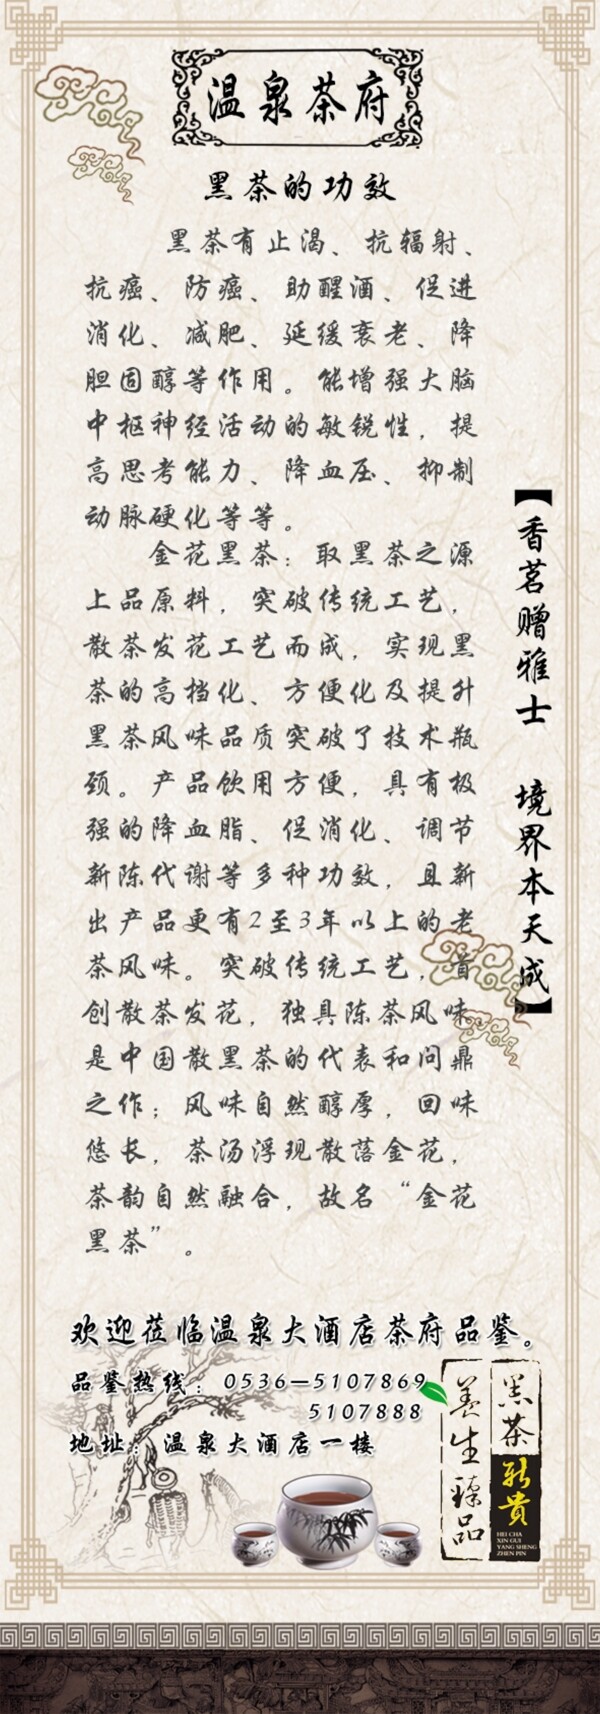 温泉茶府
黑茶的功效
黑茶有止渴、抗辐射、
抗癌、防癌、助醒酒、促进
消化、减肥、延缓衰老、降
胆固醇等作用。能增强大脑
中枢神经活动的敏锐性，提
高思考能力、降血压、抑制
动脉硬化等等。
金花黑茶：取黑茶之源
上品原料，突破传统工艺，
散茶发花工艺而成，实现黑
茶的高档化、方便化及提升
黑茶风味品质突破了技术瓶
颈。产品饮用方便，具有极
强的降血脂、促消化、调节
新陈代谢等多种功效，且新
出产品更有2至3年以上的老
茶风味。突破传统工艺，首
创散茶发花，独具陈茶风味，
是中国散黑茶的代表和问鼎
之作；风味自然醇厚，回味
悠长，茶汤浮现散落金花，
茶韵自然融合，故名“金花
黑茶”。
【香茗赠雅士 境界本天成】
欢迎莅临温泉大酒店茶府品鉴。
品鉴热线：0536—5107869
5107888
地址：温泉大酒店一楼
黑茶新贵
养生臻品
HEI CHA
XIN GUI
YANG SHENG
ZHEN PIN